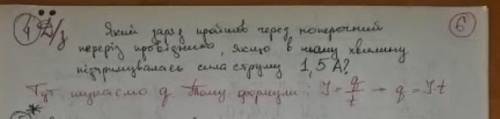 4 Д/з Який заряд пройшов через поперечний 6
переріз провідника, якщо в ньому хвилину
підтримувалась сила струму 1,5 А?
Тут шукаємо q. Тому формули: I = q/t → q = I·t